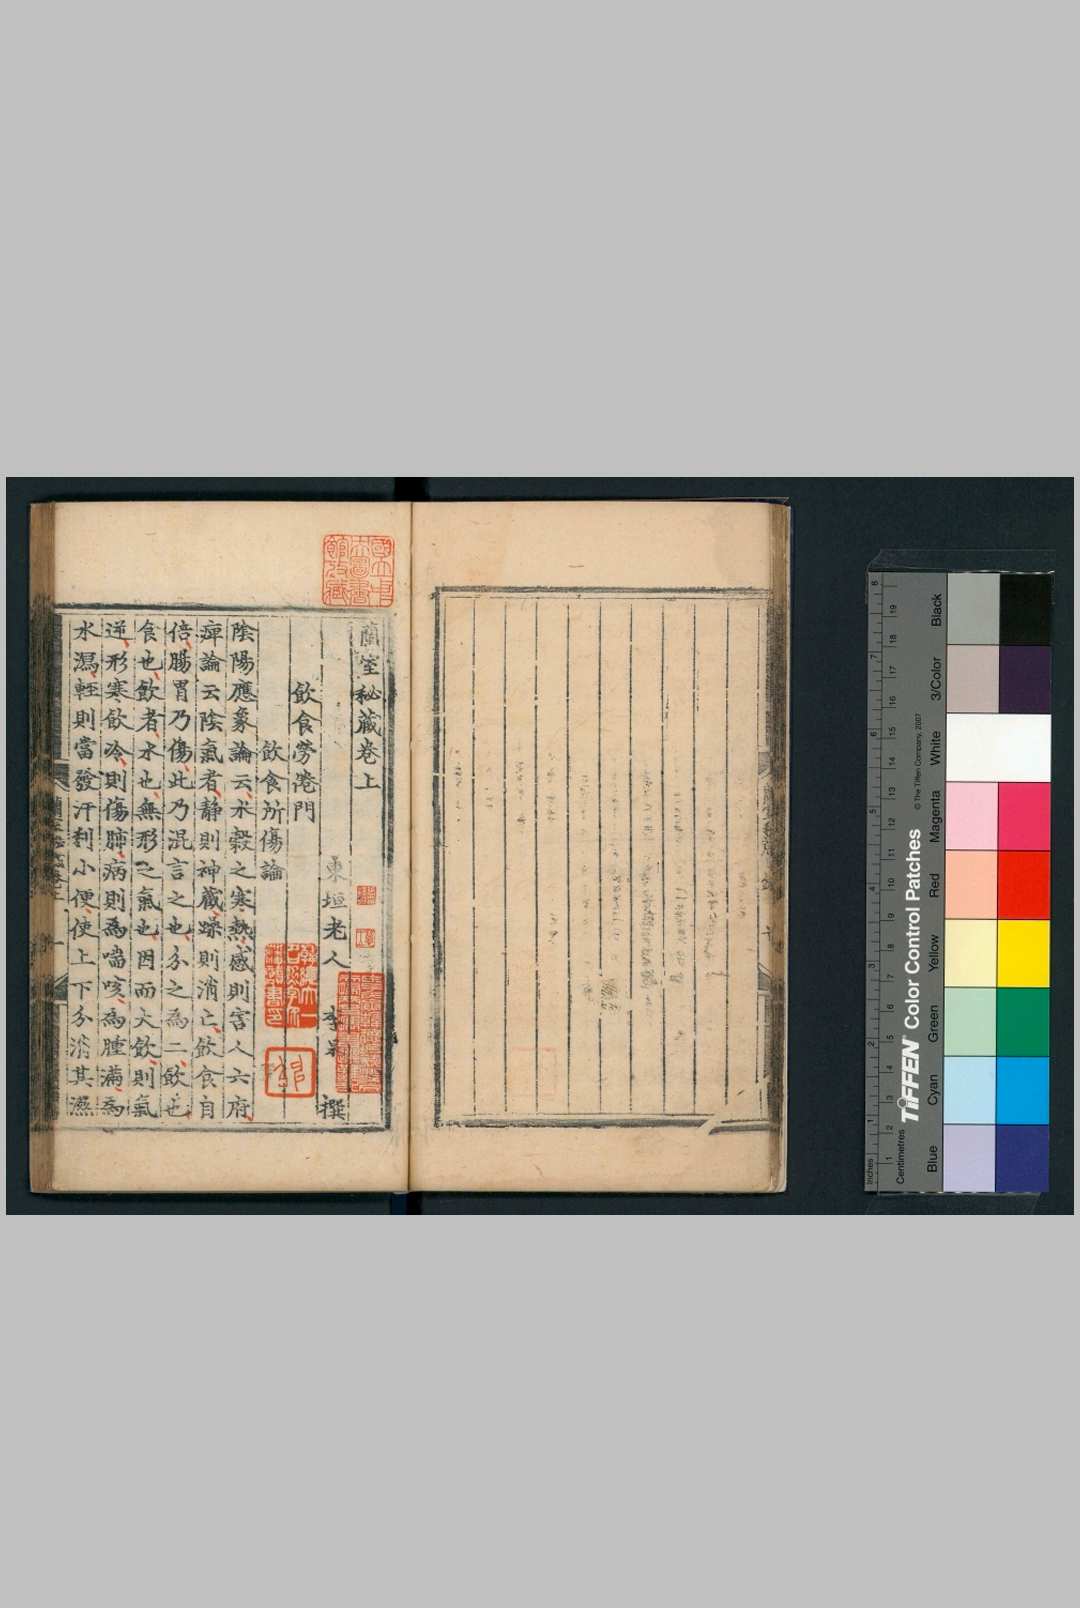 蘭室秘藏卷上
東垣老人 李杲 撰
飲食勞倦門
飲食所傷論
陰陽應象論云水穀之寒熱感則害人六府
痺論云陰氣者静則神藏躁則消亡飲食自
倍腸胃乃傷此乃混言之也分之為二飲也
食也飲者水也無形之氣也因而大飲則氣
逆形寒飲冷則傷肺病則為喘咳為腫滿為
水瀉輕則當發汗利小便使上下分消其濕
Black
3/Color
White
Magenta
Red
Yellow
Green
Cyan
Blue
TIFFEN Color Control Patches
© The Tiffen Company, 2007
Inches
Centimetres